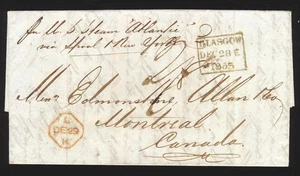 Per U S Steam "Atlantic"
via Lpool & New York
GLASGOW
DEC 28
1855
Messrs Edmonstone, Allan & Co
Montreal
Canada
L
DE29
K